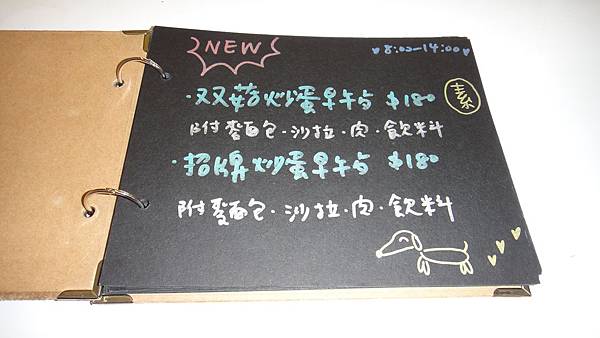 NEW
♥8:00-14:00♥
·双菇炒蛋早午与 $180 素
附麵包·沙拉·肉·飲料
·招牌炒蛋早午与 $180
附麵包·沙拉·肉·飲料